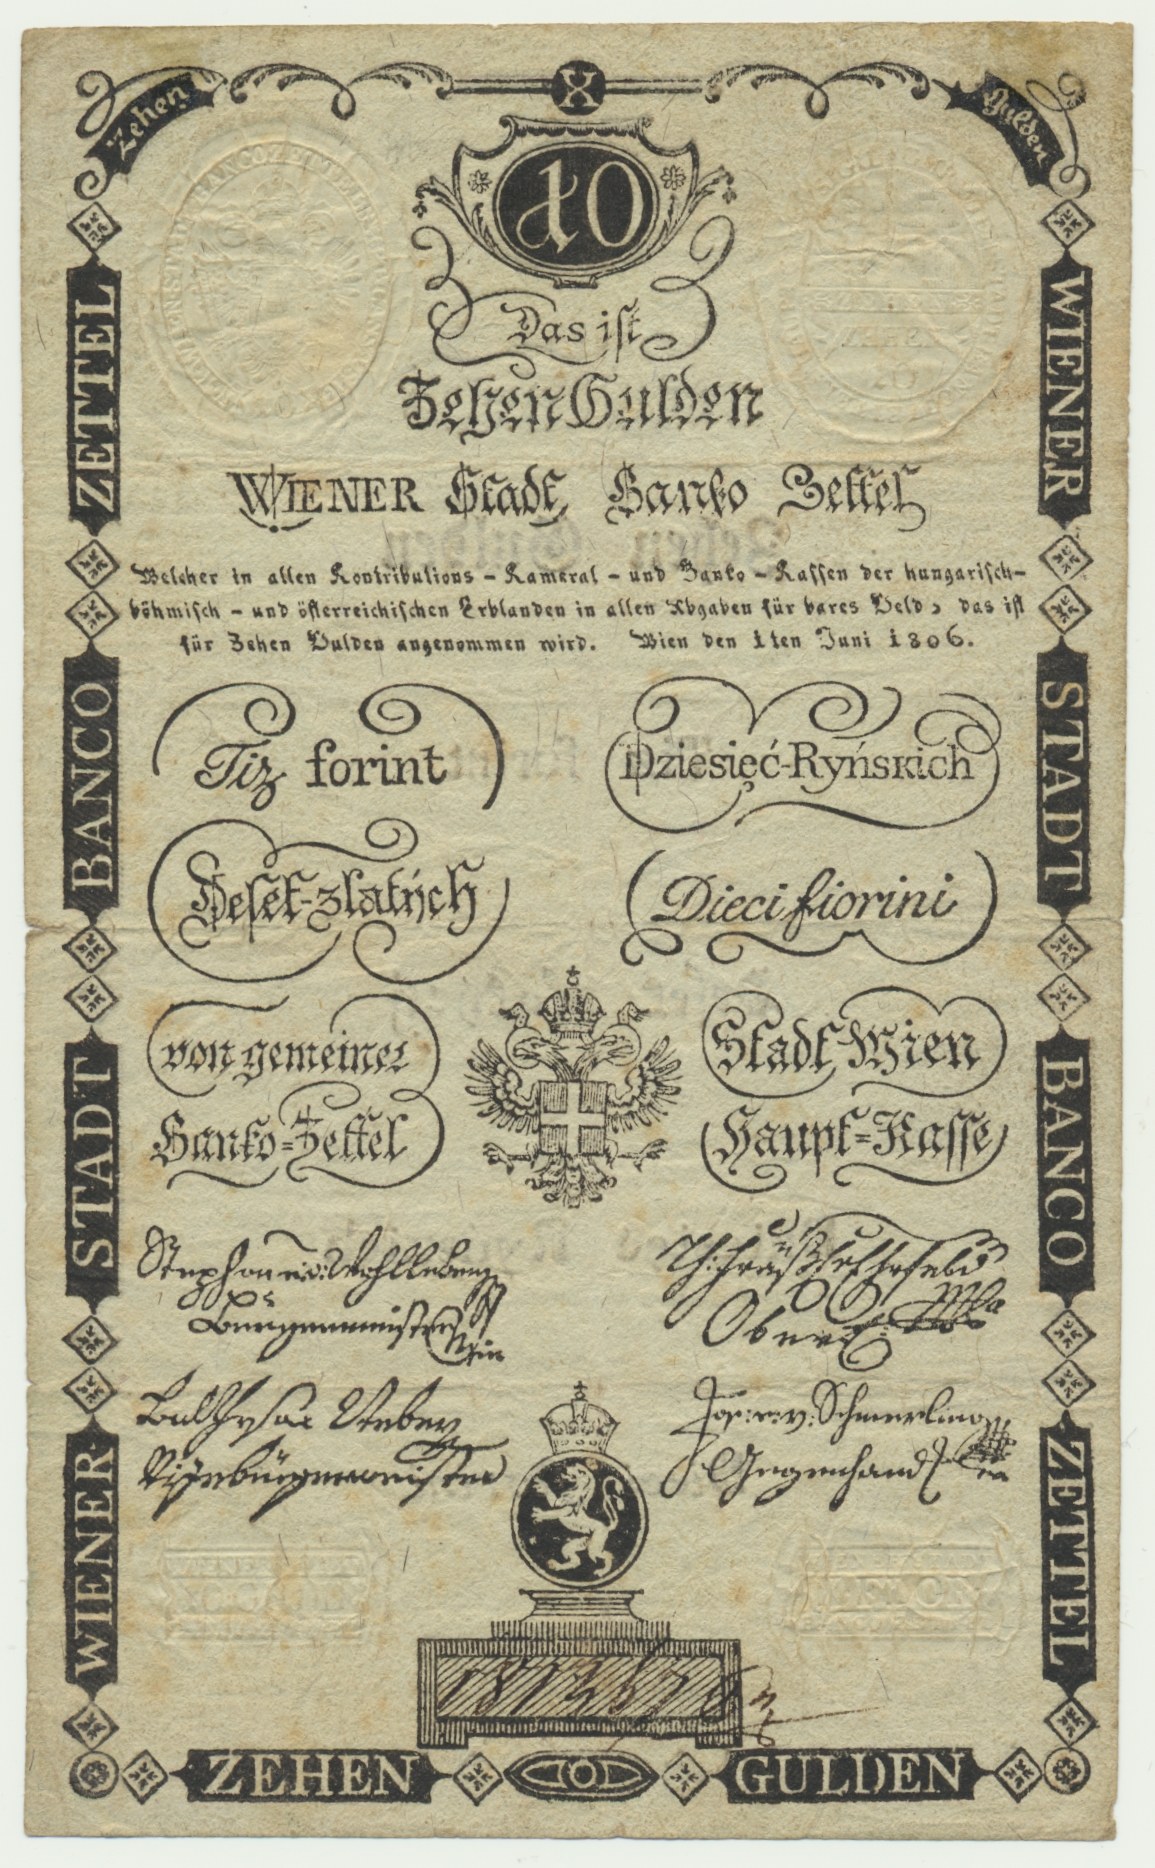 X
Zehen Gulden
10
Das iſt
Zehen Gulden
WIENER Stadt Banko Zettel
Welcher in allen Kontributions - Kameral - und Banko - Kaſſen der hungariſch-
böhmiſch - und öſterreichiſchen Erblanden in allen Abgaben für bares Geld, das iſt
für Zehen Gulden angenommen wird. Wien den 1ten Juni 1806.
Tiz forint
Dziesięć-Ryńskich
Deſet-zlatých
Dieci fiorini
von gemeiner
Stadt Wien
Banko=Zettel
Haupt=Kaſſe
Stephan v: Wohlleben
Burgermeister
Obereinn
Jos: v: Schmerling
Gegenhandl
ZETTEL
BANCO
STADT
WIENER
WIENER
STADT
BANCO
ZETTEL
ZEHEN GULDEN